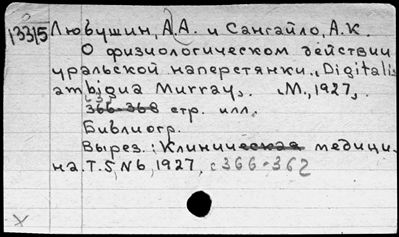 13315 Любушин, А.А. и Сангайло, А.К.
О физиологическом действии
уральской наперстянки. „Digitalis
ambigua Murray„. М., 1927,
с 3
366-368 стр. илл.
Библиогр.
Вырез.: Клиническая медици-
на. Т.5, N6, 1927, с 366-362
X